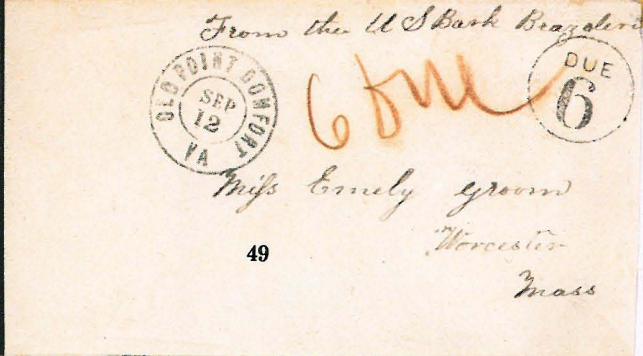 From the U S Bark Brazolera
OLD POINT COMFORT
SEP
12
VA
6 due
DUE
6
Miss Emely Groom
Worcester
Mass
49